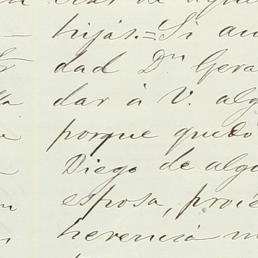 hijas.=Si au
dad Dn Gera
dar á V. alg
porque quedó
Diego de algu
esposa, proie
herencia m